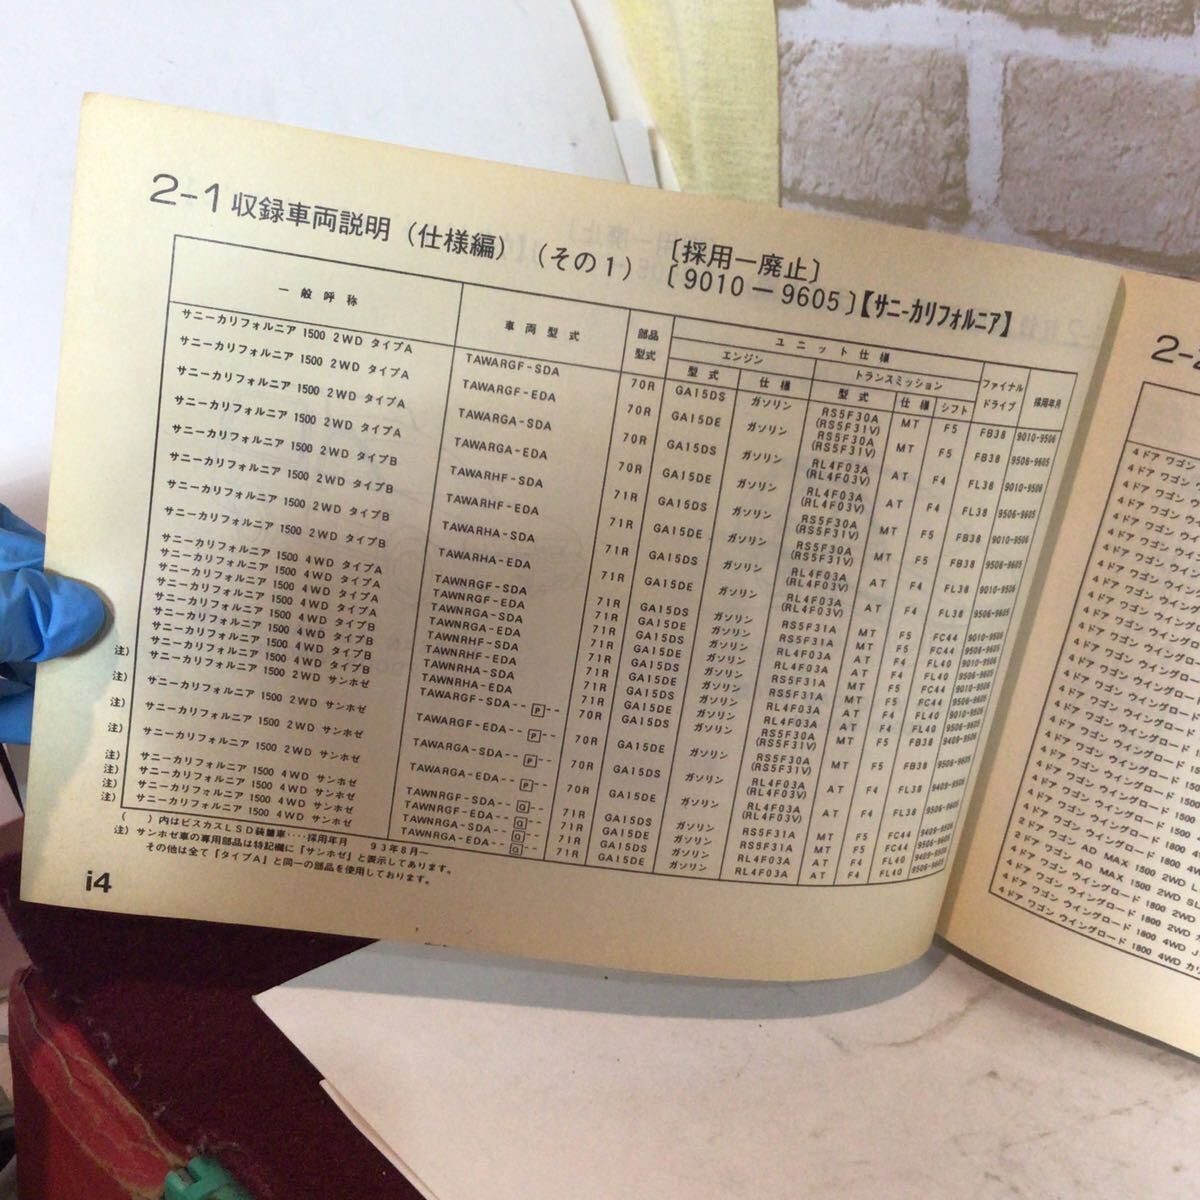 2-1 収録車両説明 (仕様編) (その1) 〔採用ー廃止〕
〔9010-9605〕【サニーカリフォルニア】
一般呼称 車両型式 部品型式 ユニット仕様 採用年月
エンジン トランスミッション ファイナルドライブ
型式 仕様 型式 仕様 シフト
サニーカリフォルニア 1500 2WD タイプA TAWARGF-SDA 70R GA15DS ガソリン RS5F30A (RS5F31V) MT F5 FB38 9010-9506
サニーカリフォルニア 1500 2WD タイプA TAWARGF-EDA 70R GA15DE ガソリン RS5F30A (RS5F31V) MT F5 FB38 9506-9605
サニーカリフォルニア 1500 2WD タイプA TAWARGA-SDA 70R GA15DS ガソリン RL4F03A (RL4F03V) AT F4 FL38 9010-9506
サニーカリフォルニア 1500 2WD タイプA TAWARGA-EDA 70R GA15DE ガソリン RL4F03A (RL4F03V) AT F4 FL38 9506-9605
サニーカリフォルニア 1500 2WD タイプB TAWARHF-SDA 71R GA15DS ガソリン RS5F30A (RS5F31V) MT F5 FB38 9010-9506
サニーカリフォルニア 1500 2WD タイプB TAWARHF-EDA 71R GA15DE ガソリン RS5F30A (RS5F31V) MT F5 FB38 9506-9605
サニーカリフォルニア 1500 2WD タイプB TAWARHA-SDA 71R GA15DS ガソリン RL4F03A (RL4F03V) AT F4 FL38 9010-9506
サニーカリフォルニア 1500 2WD タイプB TAWARHA-EDA 71R GA15DE ガソリン RL4F03A (RL4F03V) AT F4 FL38 9506-9605
サニーカリフォルニア 1500 4WD タイプA TAWNRGF-SDA 71R GA15DS ガソリン RS5F31A MT F5 FC44 9010-9506
サニーカリフォルニア 1500 4WD タイプA TAWNRGF-EDA 71R GA15DE ガソリン RS5F31A MT F5 FC44 9506-9605
サニーカリフォルニア 1500 4WD タイプA TAWNRGA-SDA 71R GA15DS ガソリン RL4F03A AT F4 FL40 9010-9506
サニーカリフォルニア 1500 4WD タイプA TAWNRGA-EDA 71R GA15DE ガソリン RL4F03A AT F4 FL40 9506-9605
サニーカリフォルニア 1500 4WD タイプB TAWNRHF-SDA 71R GA15DS ガソリン RS5F31A MT F5 FC44 9010-9506
サニーカリフォルニア 1500 4WD タイプB TAWNRHF-EDA 71R GA15DE ガソリン RS5F31A MT F5 FC44 9506-9605
サニーカリフォルニア 1500 4WD タイプB TAWNRHA-SDA 71R GA15DS ガソリン RL4F03A AT F4 FL40 9010-9506
サニーカリフォルニア 1500 4WD タイプB TAWNRHA-EDA 71R GA15DE ガソリン RL4F03A AT F4 FL40 9506-9605
注) サニーカリフォルニア 1500 2WD サンホゼ TAWARGF-SDA--P-- 70R GA15DS ガソリン RS5F30A (RS5F31V) MT F5 FB38 9409-9506
注) サニーカリフォルニア 1500 2WD サンホゼ TAWARGF-EDA--P-- 70R GA15DE ガソリン RS5F30A (RS5F31V) MT F5 FB38 9506-9605
注) サニーカリフォルニア 1500 2WD サンホゼ TAWARGA-SDA--P-- 70R GA15DS ガソリン RL4F03A (RL4F03V) AT F4 FL38 9409-9506
注) サニーカリフォルニア 1500 2WD サンホゼ TAWARGA-EDA--P-- 70R GA15DE ガソリン RL4F03A (RL4F03V) AT F4 FL38 9506-9605
注) サニーカリフォルニア 1500 4WD サンホゼ TAWNRGF-SDA--Q-- 71R GA15DS ガソリン RS5F31A MT F5 FC44 9409-9506
注) サニーカリフォルニア 1500 4WD サンホゼ TAWNRGF-EDA--Q-- 71R GA15DE ガソリン RS5F31A MT F5 FC44 9506-9605
注) サニーカリフォルニア 1500 4WD サンホゼ TAWNRGA-SDA--Q-- 71R GA15DS ガソリン RL4F03A AT F4 FL40 9409-9506
注) サニーカリフォルニア 1500 4WD サンホゼ TAWNRGA-EDA--Q-- 71R GA15DE ガソリン RL4F03A AT F4 FL40 9506-9605
( )内はビスカスLSD装着車‥‥採用年月 93年8月~
注) サンホゼ車の専用部品は特記欄に「サンホゼ」と表示してあります。
その他は全て「タイプA」と同一の部品を使用しております。
i4
2-2
4ドア ワゴン ウイングロード 1500
2ドア AD MAX 1500 2WD
4ドア ワゴン ウイングロード 1800 2WD
4ドア ワゴン ウイングロード 1800 4WD